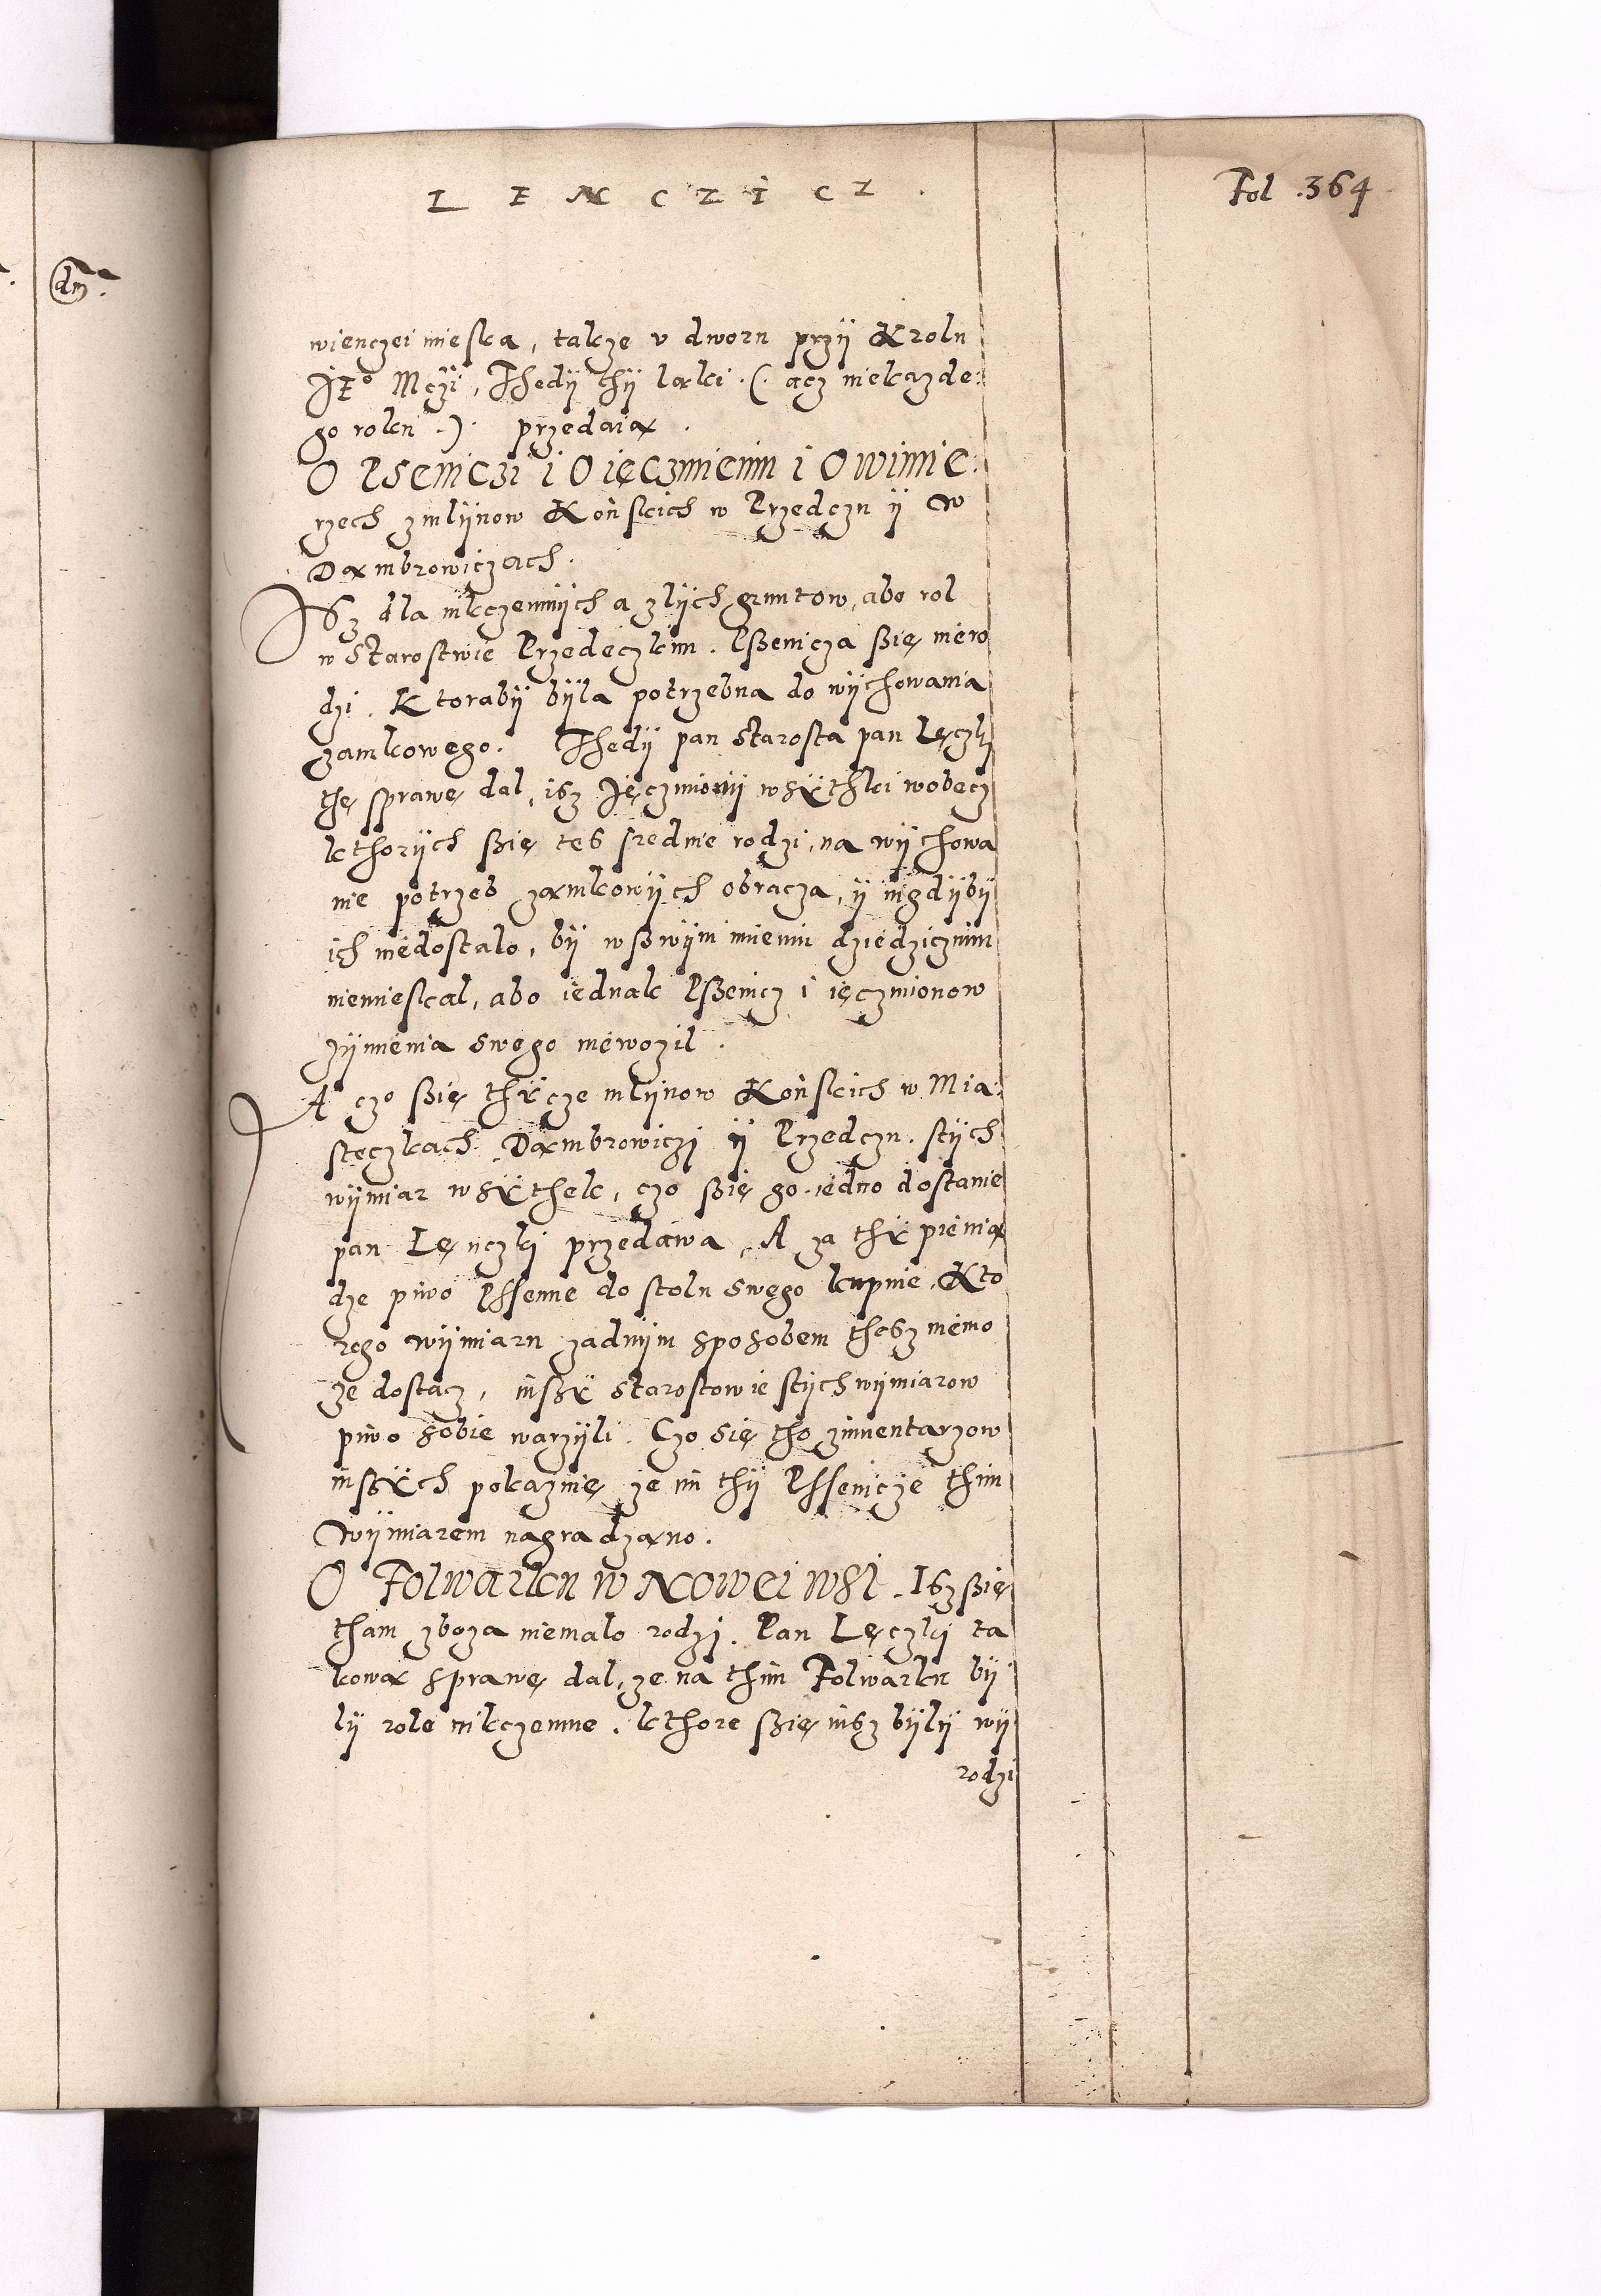 LENCZICZ.
Fol .364.
dm
wienczei mieska, takze v dworu przÿ Krolu
JE° Mczÿi, ThedÿthÿLąki .(. acz niekazde:
go roku .). przedaią.
O Pseniczi i O ięczmieniu i O wimie:
rzech z mlÿnow Końskich w Przedczu ÿ w
Dąmbrowiczach.
Isz dla nikczemnÿch a zlÿch gruntow, abo rol
w Starostwie Przedeczkim. Pßenicza ßię niero
dzi. Ktorabÿ bÿla potrzebna do wÿchowania
zamkowego. Thedÿ pan Starosta pan Lęczki
thę sprawę dal, isz Jęczmionÿ wsÿthki wobecz
kthorÿch ßię tes srednie rodzi, na wÿchowa
nie potrzeb zamkowÿch obracza, ÿ nigdÿbÿ
ich niedostalo, bÿ w ßwÿm imieniu dziedzicznim
niemieskal, abo iednak Pßenicz i ięczmionow
z ÿmienia swego niewozil.
A czo ßię thÿcze mlÿnow Końskich w Mia:
steczkach Dąmbrowiczi ÿ Przedczu. stÿch
wÿmiar wsÿthek, czo ßię go iedno dostanie
pan Lęnczki przedawa, A za thÿ pienią
dze piwo Pssenne do stolu swego kupuie. Kto
rego wÿmiaru zadnÿm sposobem thesz niemo
ze dostacz, inßÿ Starostowie stÿch wÿmiarow
piwo sobie warzÿli. Czo się tho z inwentarzow
insÿch pokazuie, ze im thÿ Psseniczę thim
wÿmiarem nagradzano.
O Folwarku w Nowei wsi. Isz ßię
tham zboza niemalo rodzi. Pan Lęczki ta
kową sprawę dal, ze na thim Folwarku bÿ
lÿ role nikczemne. kthore ßię iusz bÿlÿ wÿ
rodzi